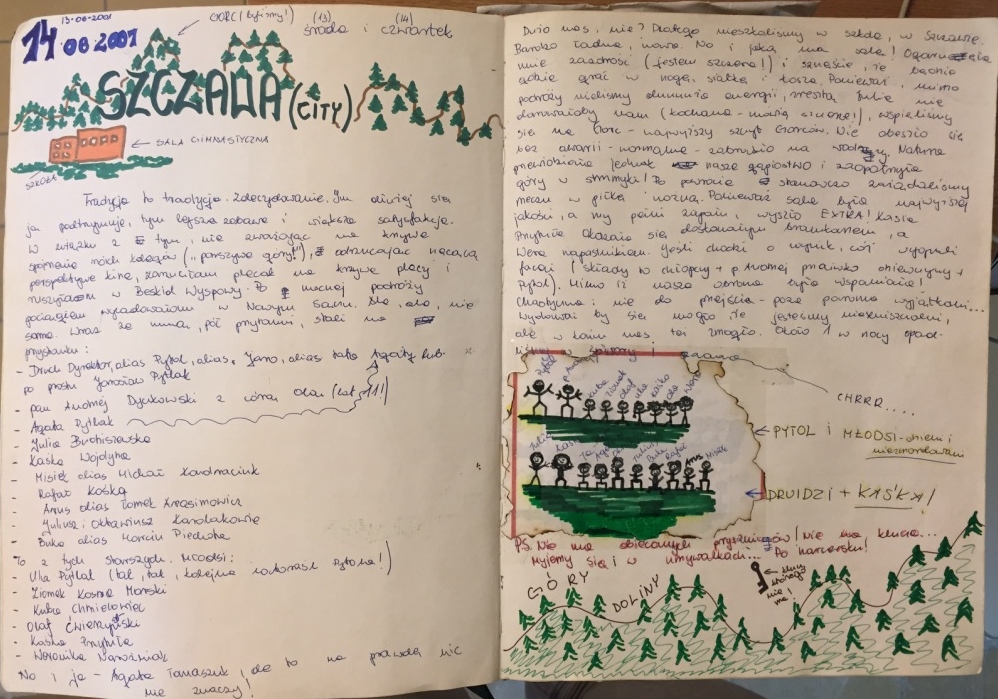 13-06-2001
14 06 2001
GORCE (byliśmy!)
(13) (14)
środa i czwartek
SZCZAWA (CITY)
SALA GIMNASTYCZNA
SZKOŁA
Tradycja to tradycja. Zdecydowanie. Im dłużej się
ją podtrzymuje, tym lepsza zabawa i większa satysfakcja.
W związku z tym, nie zważając na krzywe
spojrzenia moich kolegów („parszywe góry!"), odrzucając nęcącą
perspektywę kina, zarzuciłam plecak na krzywe plecy i
ruszyłam w Beskid Wyspowy. Po nocnej podróży
pociągiem wylądowałam w Nowym Sączu. Ale, ale, nie
sama. Wraz ze mną, pół przytomni, stali na
przystanku:
- Druch Dyrektor, alias Pytol, alias Jano, alias tata Agaty lub
po prostu Jarosław Pytlak
- pan Andrzej Dyukowski z córą Olą (lat 11!)
- Agata Pytlak
- Julia Buchiszewska
- Kaśka Wojdyna
- Misiek alias Michał Kondraciuk
- Rafał Kośka
- Anus alias Tomek Anasimowicz
- Juliusz i Oktawiusz Kandlakowie
- Buka alias Marcin Pieducha
To z tych starszych. Młodsi:
- Ula Pytlak (tak, tak, kolejna latorośl Pytona!)
- Ziomek Kosma Moński
- Kuba Chmielowiec
- Olaf Ćwierzyński
- Kaśka Przybyła
- Weronika Naroźniak
No i ja - Agata Tomaszuk, ale to na prawdę nic
nie znaczy!
Dużo nas, nie? Dlatego mieszkaliśmy w szkole, w Szczawie.
Bardzo ładna, nowa. No i jaką ma salę! Ogarnęła
mnie zazdrość (jestem szczera!) i szczęście, że będzie
gdzie grać w nogę, siatkę i kosza. Ponieważ, mimo
podróży mieliśmy energii, zresztą Julia nie
darowałaby nam (kochana), wspięliśmy
się na Gorc - najwyższy szczyt Gorców. Nie obeszło się
bez awarii - normalne - zabrakło na wodzy. Natura
przewidziała jednak nasze gapiostwo i zaopatrzyła
góry w strumyki! Po powrocie stanowczo zażądaliśmy
meczu w piłkę nożną. Ponieważ sala była najwyższej
jakości, a my pełni zapału, wyszło EXTRA! Kasia
Przybyła okazała się doskonałym bramkarzem, a
Wera napastnikiem. Jeśli chodzi o wynik, cóż wygrali
faceci (składy to chłopcy + p. Andrzej przeciwko dziewczyny +
Pytol). Mimo iż nasza obrona była wspaniała!
Chaotyczna: nie do przejścia - poza paroma wyjątkami...
Wydawać by się mogło, że jesteśmy niezniszczalni,
ale w końcu nas też zmogło. Około 1 w nocy opad-
liśmy w śpiwory i
CHRRR....
PYTOL i MŁODSI - dzielni i
niezmordowani
DRUIDZI + KAŚKA!
Kuba
Ziomek
Olaf
Ula
Kaśka
Ola
Wera
Julia
Kaśka
Ja
Juliusz
Buka
Rafał
Anus
Misiek
P.S. Nie ma obiecanych pryszniców! Nie ma klucza...
Myjemy się i w umywalkach... Po harcersku!
GÓRY
DOLINY
klucz
którego
nie
ma!